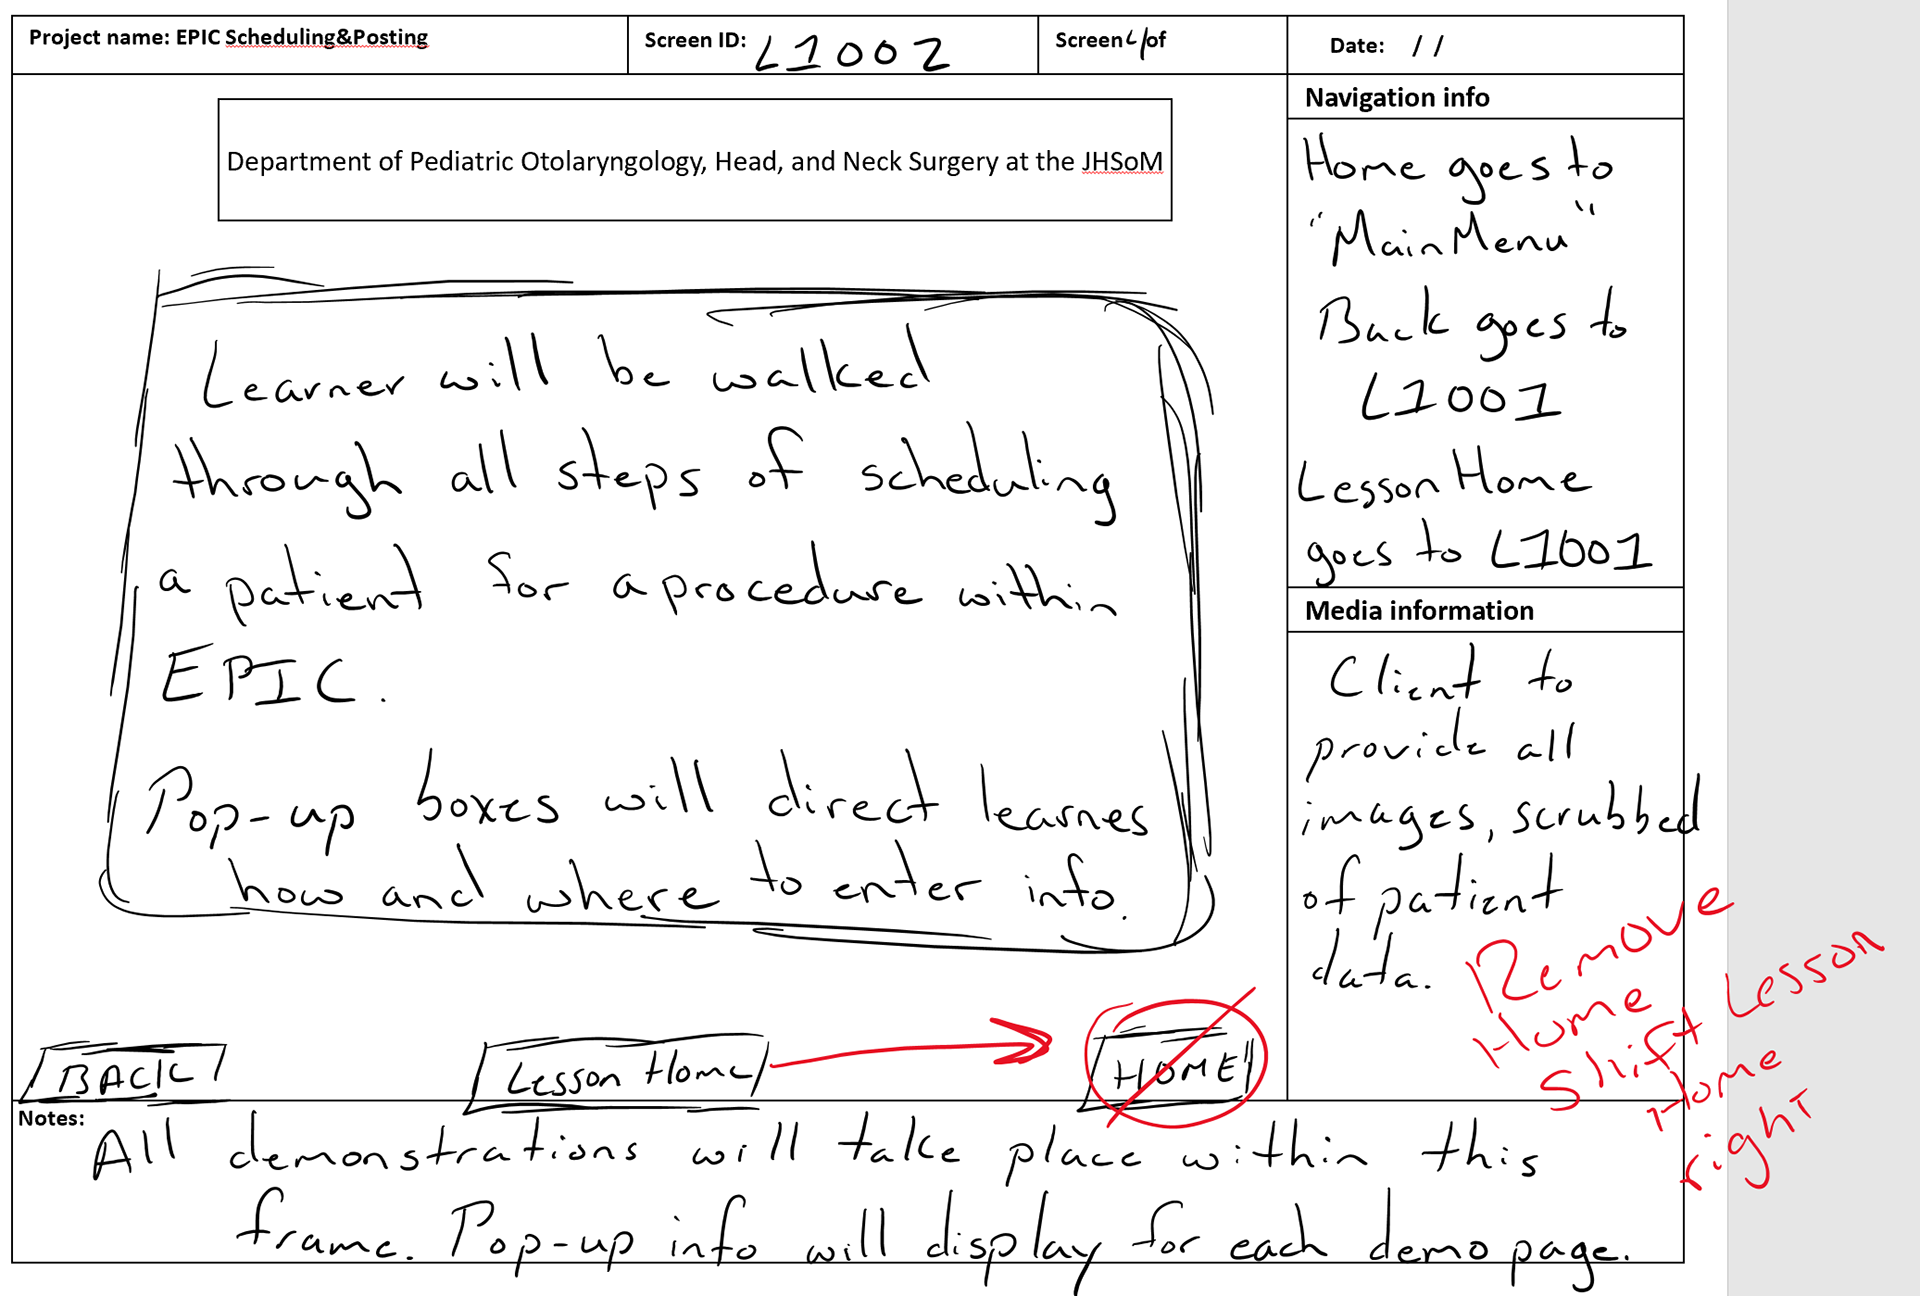 Project name: EPIC Scheduling&Posting
Screen ID: L1002
Screen 4/of
Date: / /
Department of Pediatric Otolaryngology, Head, and Neck Surgery at the JHSoM
Learner will be walked
through all steps of scheduling
a patient for a procedure within
EPIC.
Pop-up boxes will direct learnes
how and where to enter info.
BACK
Lesson Home
HOME
Navigation info
Home goes to
"Main Menu"
Back goes to
L1001
Lesson Home
goes to L1001
Media information
Client to
provide all
images, scrubbed
of patient
data.
Remove
Home
Shift Lesson
Home
right
Notes:
All demonstrations will take place within this
frame. Pop-up info will display for each demo page.